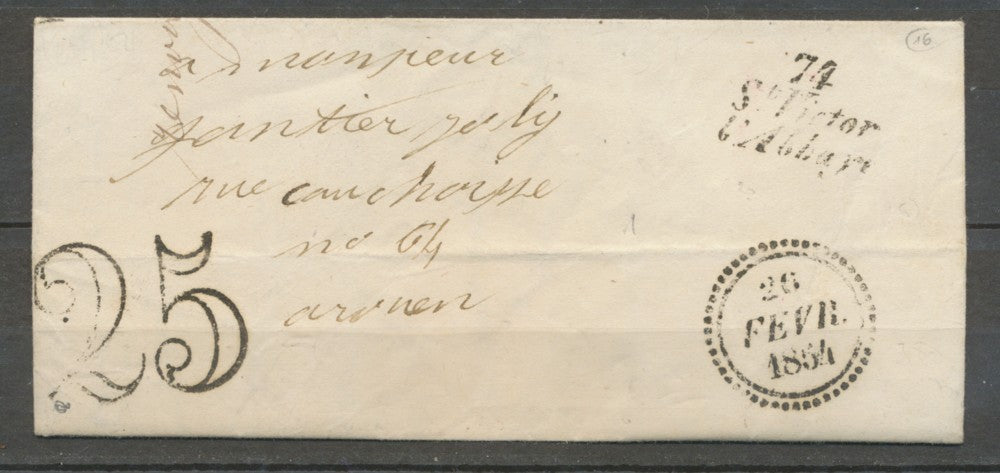 a monsieur
gantier joly
rue cauchoisse
no 64
arouen
74
St Victor
l'Abbaye
25
26
FEVR.
1854
16